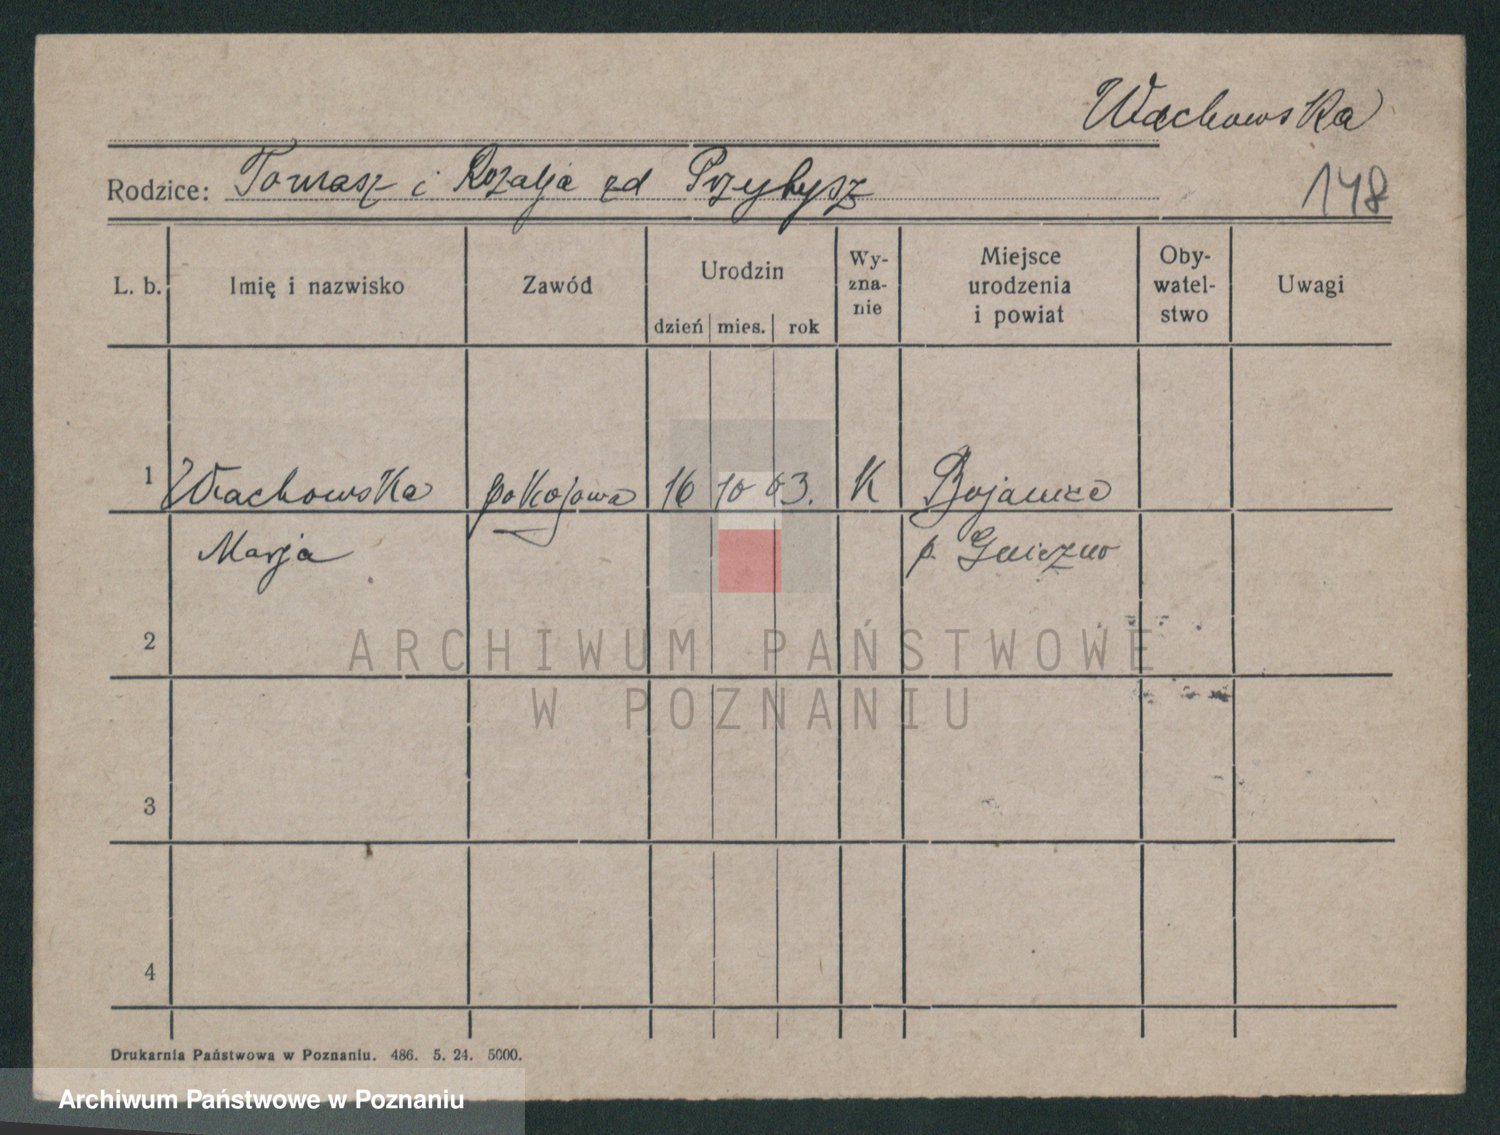 Wachowska
Rodzice: Tomasz i Rozalja zd Przybysz
148
L. b. Imię i nazwisko Zawód Urodzin dzień mies. rok Wy-zna-nie Miejsce urodzenia i powiat Oby-watel-stwo Uwagi
1 Wachowska pokojowa 16 10 03. K Bojanice
Marja p. Gniezno
2
ARCHIWUM PAŃSTWOWE
W POZNANIU
3
4
Drukarnia Państwowa w Poznaniu. 486. 5. 24. 5000.
Archiwum Państwowe w Poznaniu